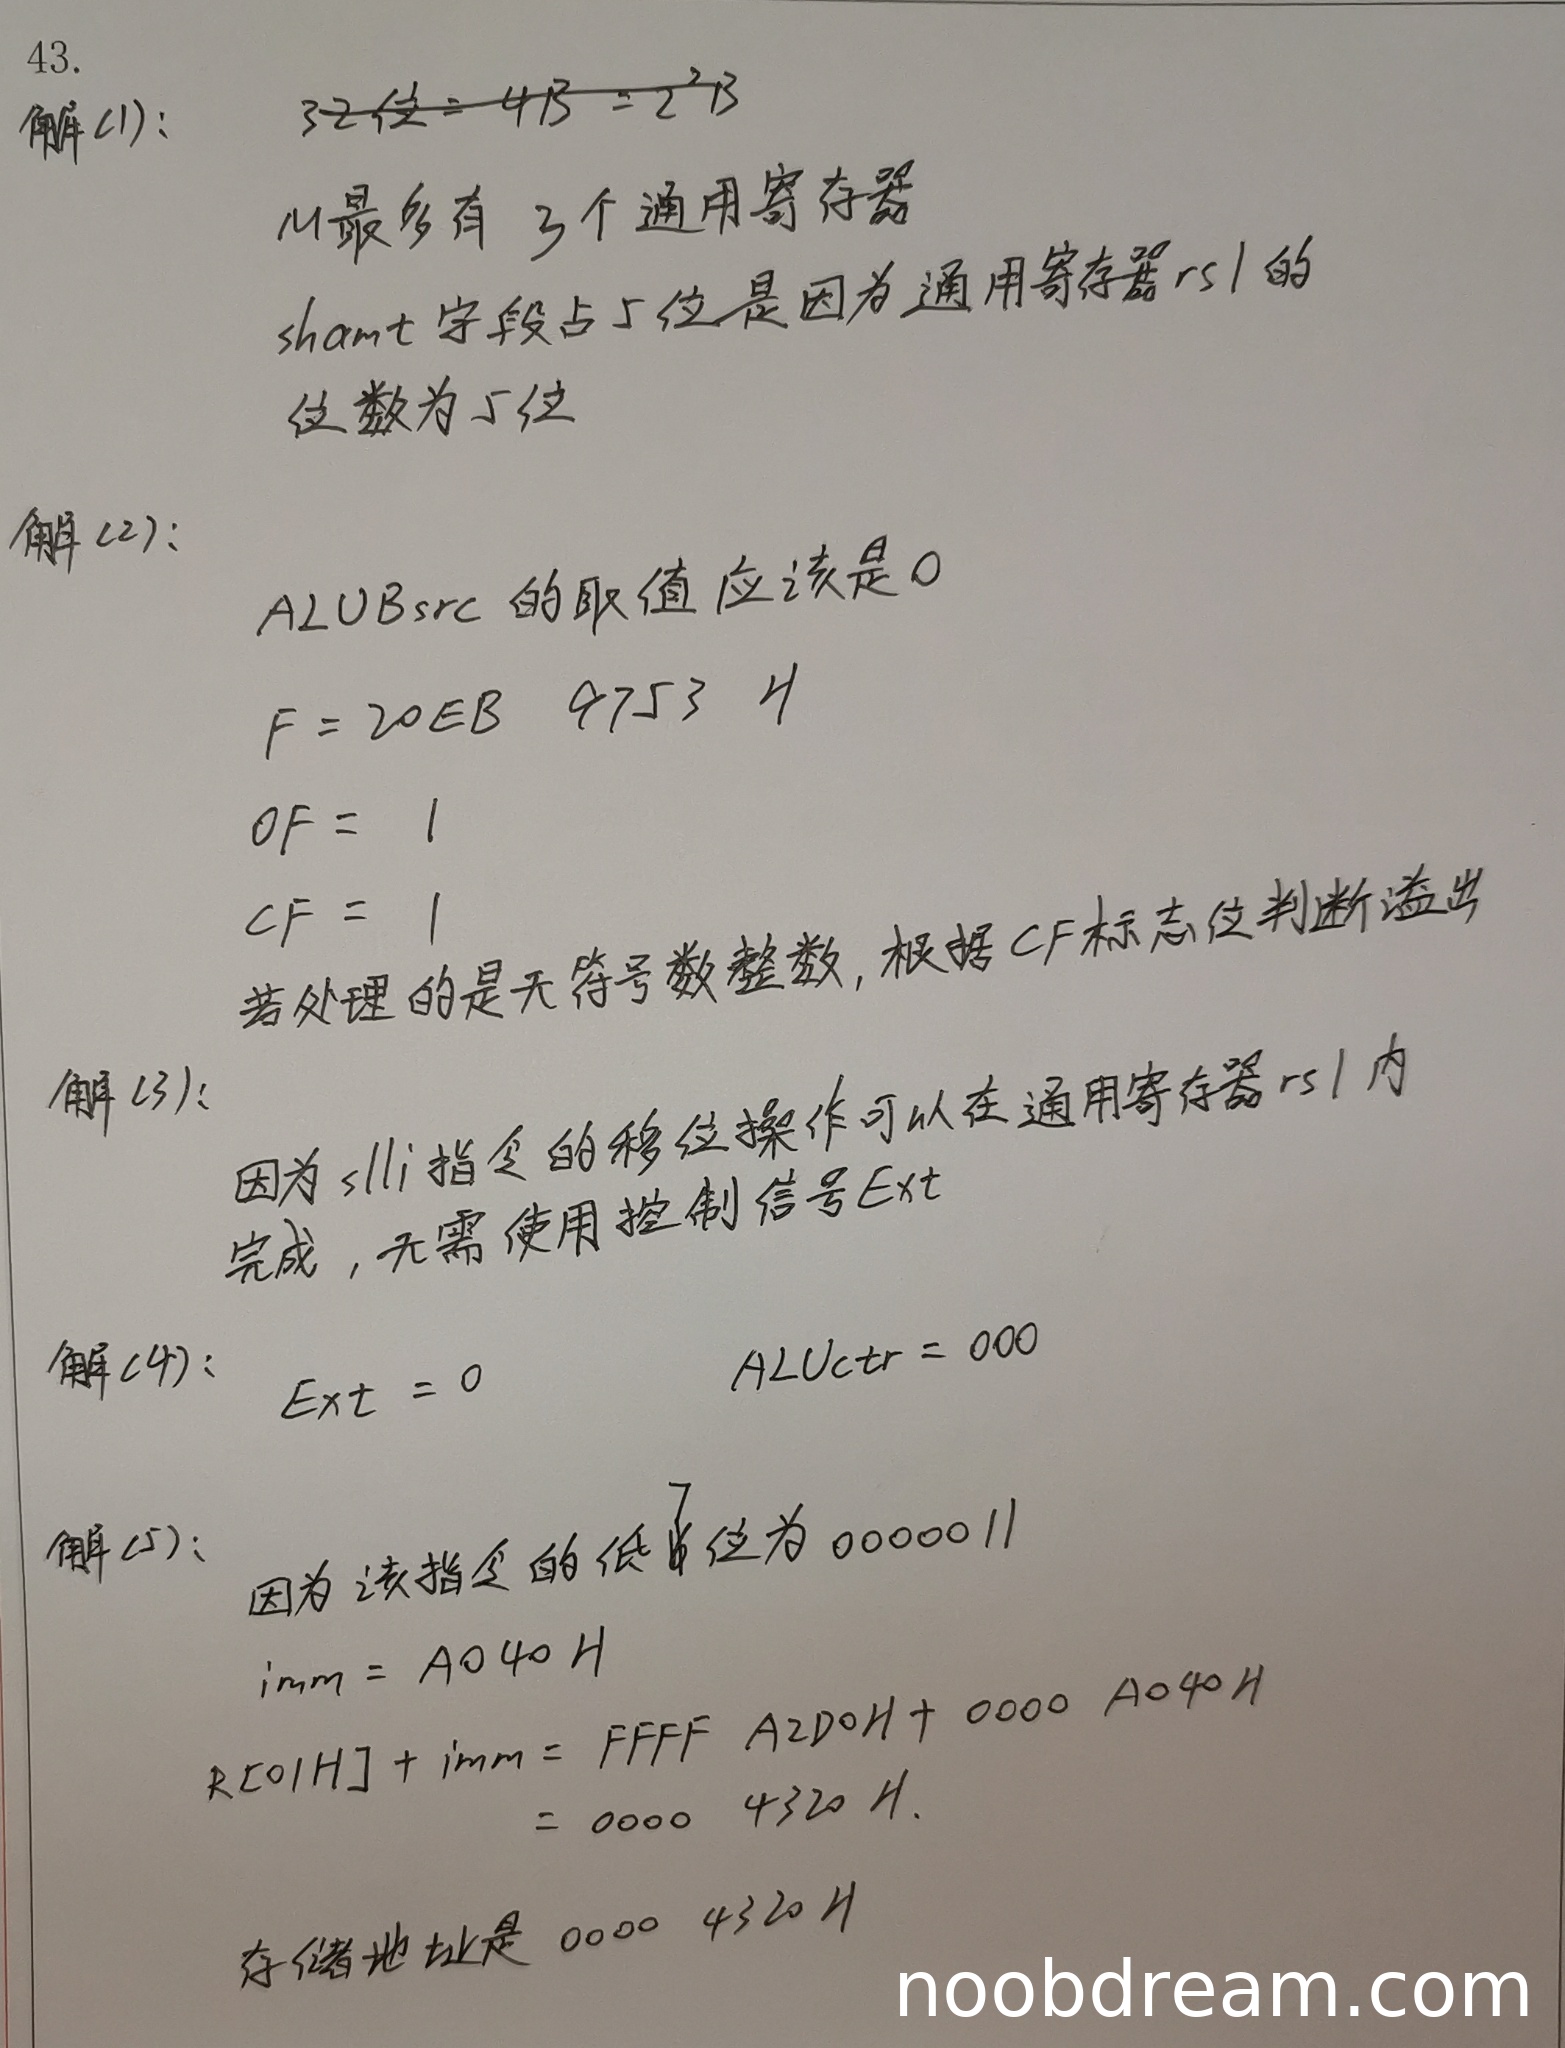 43.
解(1):
32位 = 4B = 2²B
M最多有 3个通用寄存器
shamt字段占5位是因为通用寄存器rs1的
位数为5位
解(2):
ALUBsrc 的取值应该是0
F = 20EB 9753 H
OF = 1
CF = 1
若处理的是无符号数整数, 根据CF标志位判断溢出
解(3):
因为slli指令的移位操作可以在通用寄存器rs1内
完成, 无需使用控制信号Ext
解(4):
Ext = 0 ALUctr = 000
解(5):
因为该指令的低7位为0000011
imm = A040H
R[01H] + imm = FFFF A2D0H + 0000 A040H
= 0000 4320 H.
存储地址是 0000 4320H
noobdream.com